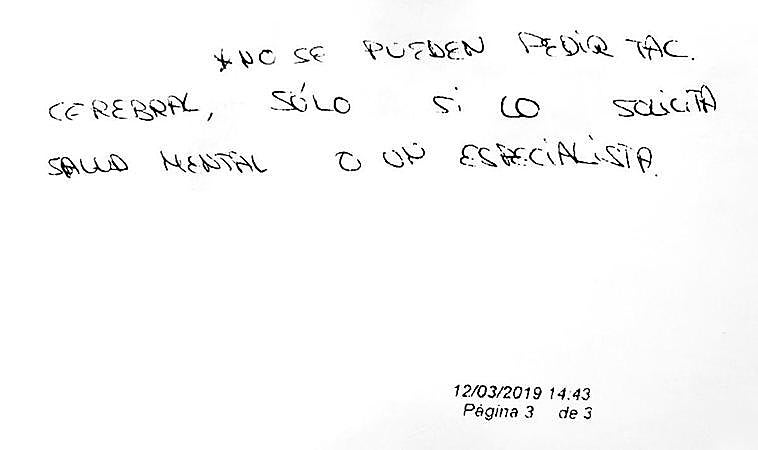 *NO SE PUEDEN PEDIR TAC.
CEREBRAL, SÓLO SI LO SOLICITA
SALUD MENTAL O UN ESPECIALISTA.
12/03/2019 14:43
Página 3 de 3